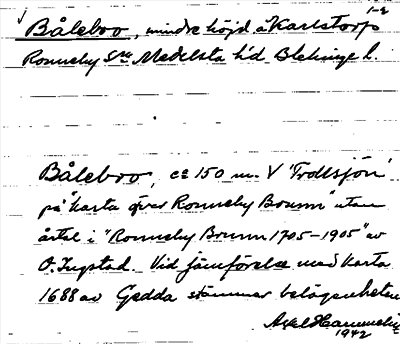 1-2
Båleboo, mindre höjd å Karlstorp
Ronneby Sn Medelsta hd Blekinge l.
Båleboo, ca 150 m. V 'Trollsjön'
på "Karta över Ronneby Brunn" utan
årtal i "Ronneby Brunn 1705-1905" av
O. Ingstad. Vid jämförelse med karta
1688 av Gedda stämmer belägenheten
Axel
1942